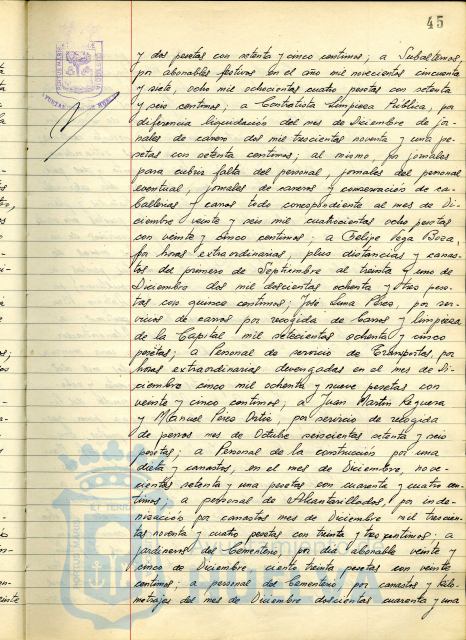 45
y dos pesetas con setenta y cinco centimos; a Subalternos,
por abonables festivos en el año mil novecientos cincuenta
y siete, ocho mil ochocientas cuatro pesetas con setenta
y seis centimos; a Contratista Limpieza Pública, por
diferencia liquidación del mes de Diciembre de jor-
nales de carero dos mil trescientas noventa y una pe-
setas con setenta centimos; al mismo por jornales
para cubrir falta del personal, jornales del personal
eventual, jornales de careros y conservación de ca-
ballerias y carros todo correspondiente al mes de Di-
ciembre veinte y seis mil cuatrocientas ocho pesetas
con veinte y cinco centimos. a Felipe Vega Boza,
por horas extraordinarias, plus distancias y canas-
tos del primero de Septiembre al treinta y uno de
Diciembre dos mil doscientas ochenta y tres pese-
tas con quince centimos; José Lima Pérez, por ser-
vicios de carros por recogida de Carros y limpieza
de la Capital mil setecientas ochenta y cinco
pesetas; a Personal de servicio de Transportes, por
horas extraordinarias devengadas en el mes de Di-
ciembre cinco mil ochenta y nueve pesetas con
veinte y cinco centimos; a Juan Martin Reguera
y Manuel Peiro Ortiz, por servicio de recogida
de perros mes de Octubre seiscientas setenta y seis
pesetas; a Personal de la construcción por una
dieta y canastos, en el mes de Diciembre, nove-
cientas setenta y una pesetas con cuarenta y cuatro cen-
timos a personal de Alcantarillados, por inde-
nización por canastos mes de Diciembre mil trescien-
tas noventa y cuatro pesetas con treinta y tres centimos; a
jardineros del Cementerio, por dia abonable veinte y
cinco de Diciembre ciento treinta pesetas con veinte
centimos; a personal del Cementerio por canastos y kilo-
metrajes del mes de Diciembre doscientas cuarenta y una